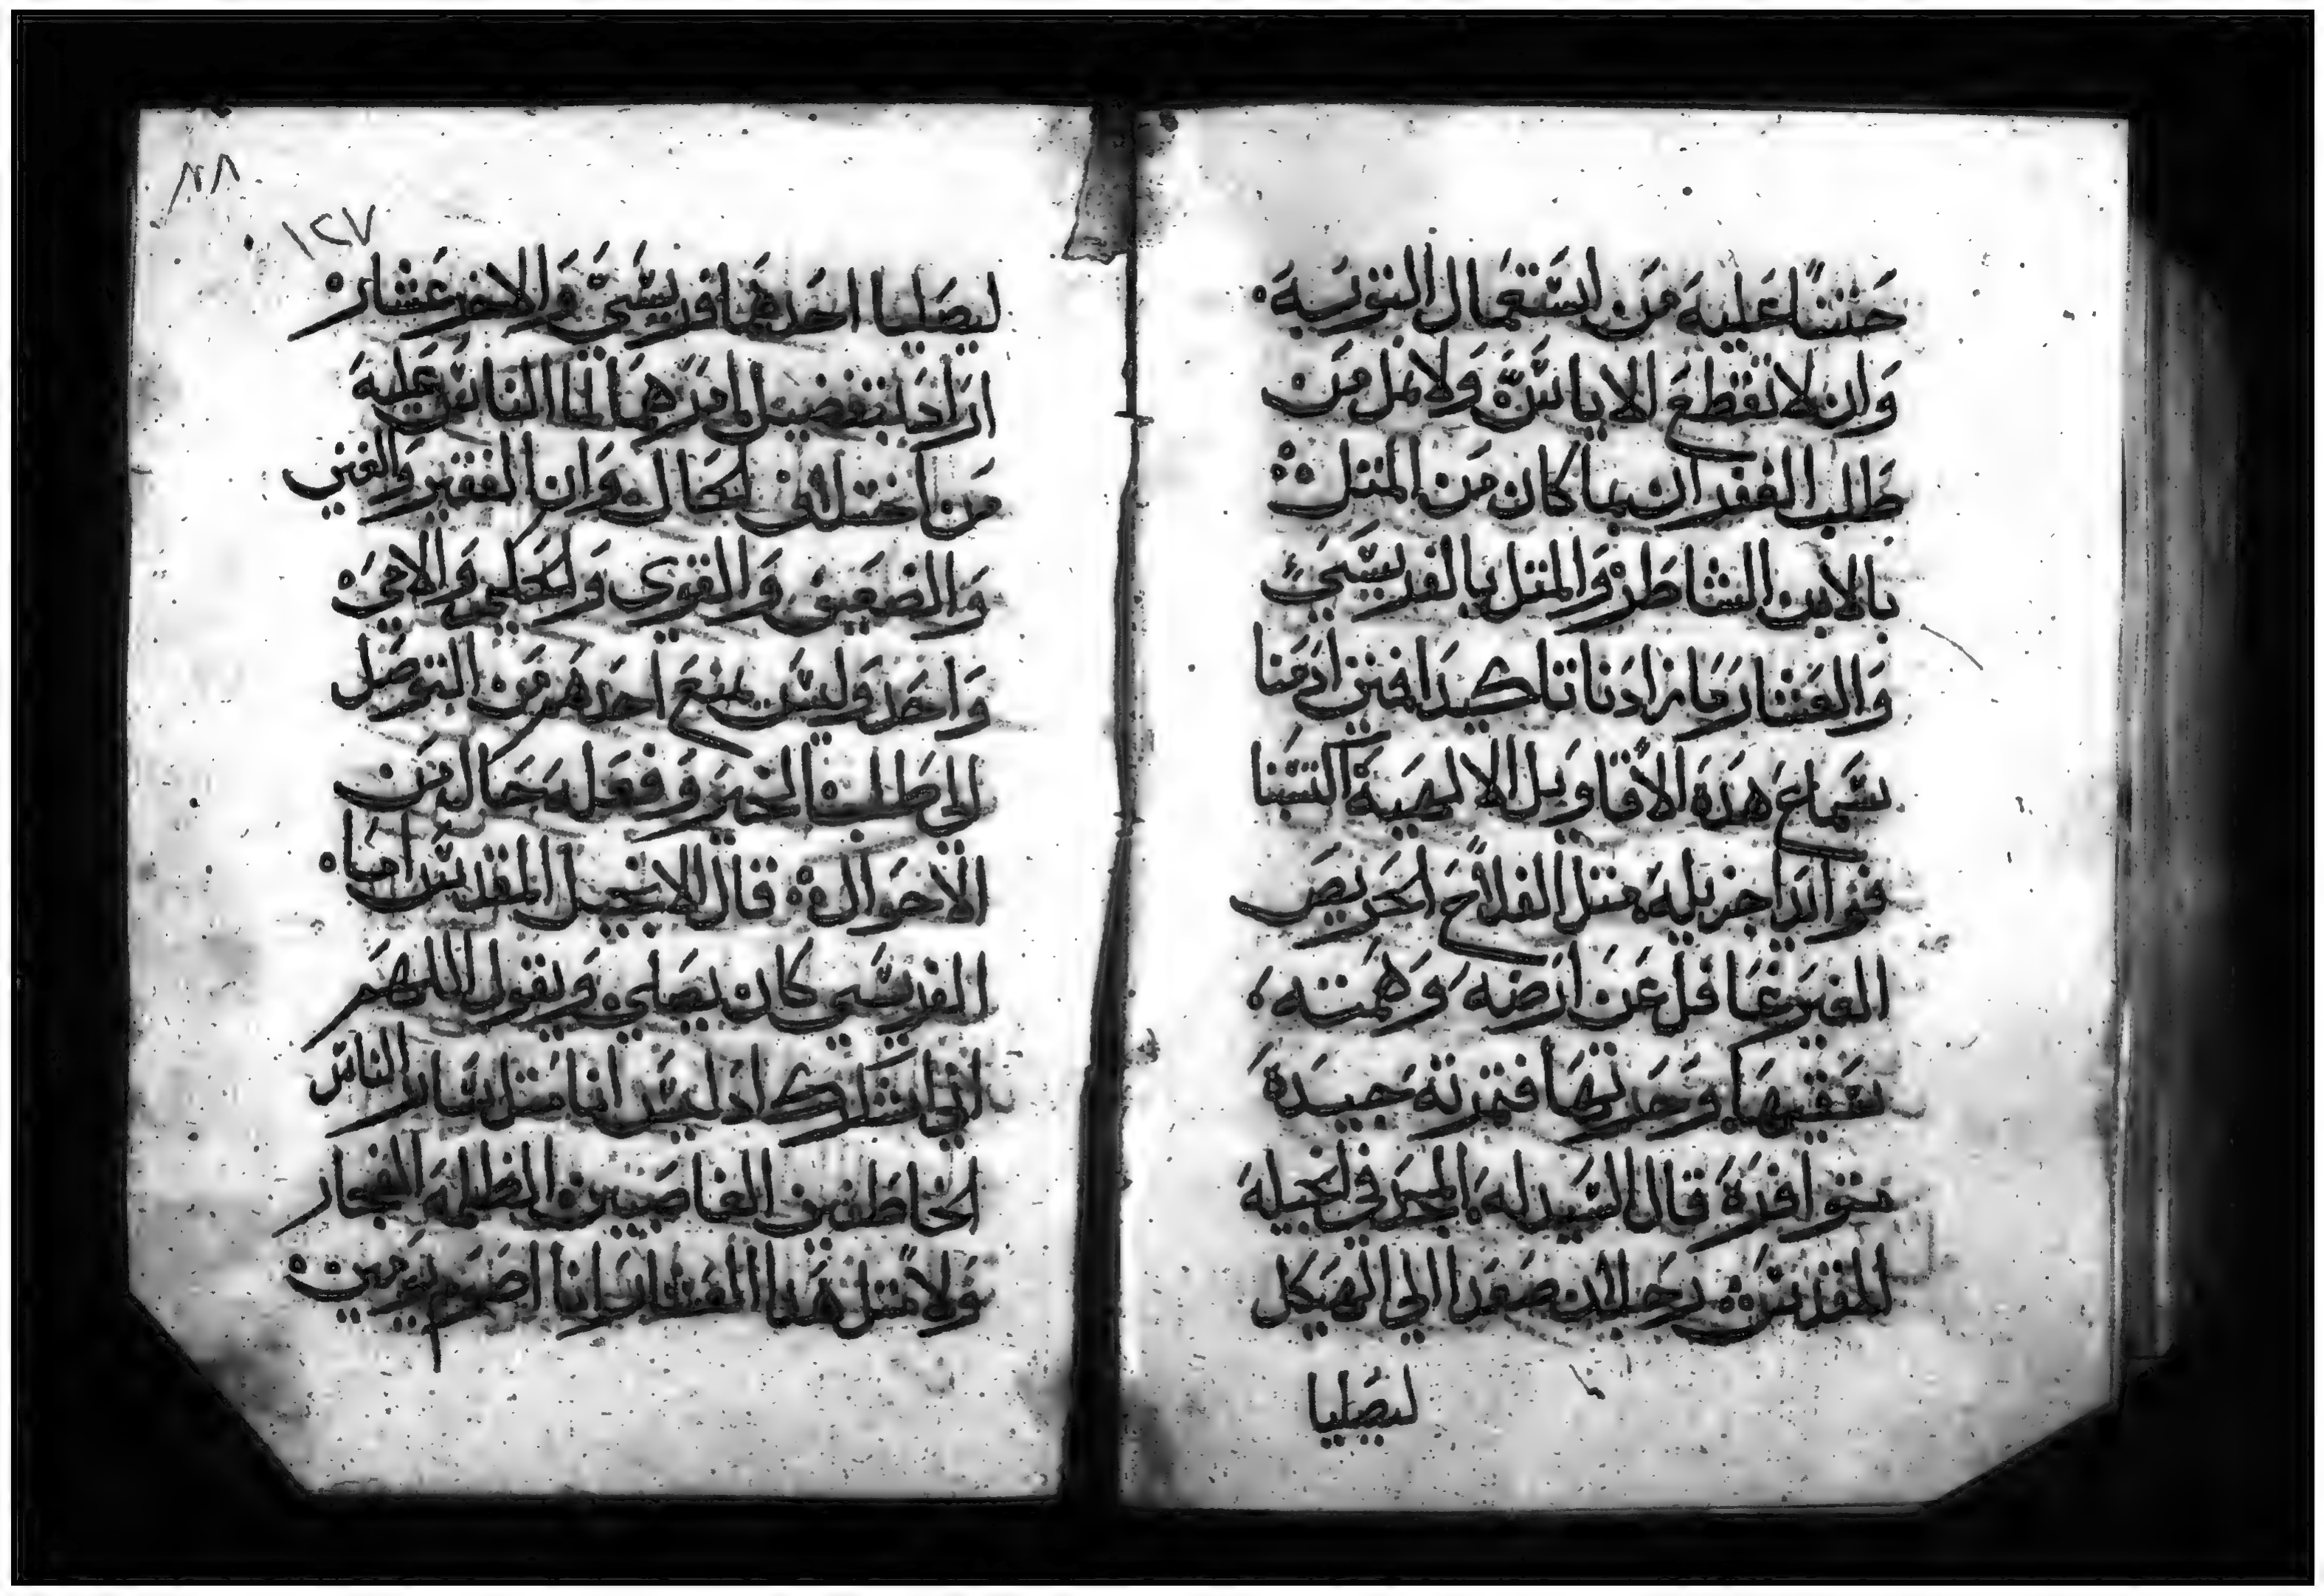 حتنا عليه من استعمال التوبه
وان لا نقطع الاياس ولا نمل من
طلب الغفران بما كان من المثل
بالابن الشاطر والمثل بالفريسي
والعشار وما زادنا تاكيدا فمتي ادمنا
سماع هذه الاقاويل الالهية اكتسبنا
فوائد جزيله مثل الفلاح الحريص
الغير غافل عن ارضه وهمته
سقيها وحرتها فثمرته جيدة
متوافرة قال السيد له المجد في انجيله
المقدس رجلان صعدا الي الهيكل
ليصليا
٨٨
١٢٧
ليصليا احدهما فريسي والاخر عشار
اراد بتفضيل امرهما لما الناس عليه
من اختلاف الحال وان الفقير والغني
والضعيف والقوي والحكيم والامي
واحد وليس يمنع احدهم من التوصل
الي طلب الخير وفعله حال من
الاحوال قال الانجيل المقدس اما
الفريسي كان يصلي ويقول اللهم
اني اشكرك اد ليس انا مثل سار الناس
الخاطفين الغاصبين الظلمه الفجار
ولا مثل هدا العشار وانا اصوم يومين